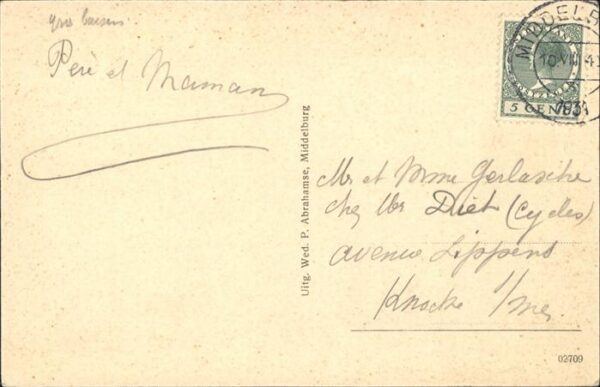 gros baisers
Père et Maman
Uitg. Wed. P. Abrahamse, Middelburg
MIDDELB
10 VIII 4
1931
5 CENT
Mr et Mme Gerlache
chez Mr Diet (Cycles)
avenue Lippens
Knocke s/mer
02709